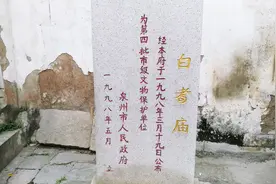 白耇庙
经本府于一九九八年三月十九日公布
为第四批市级文物保护单位
泉州市人民政府
一九九八年五月 立